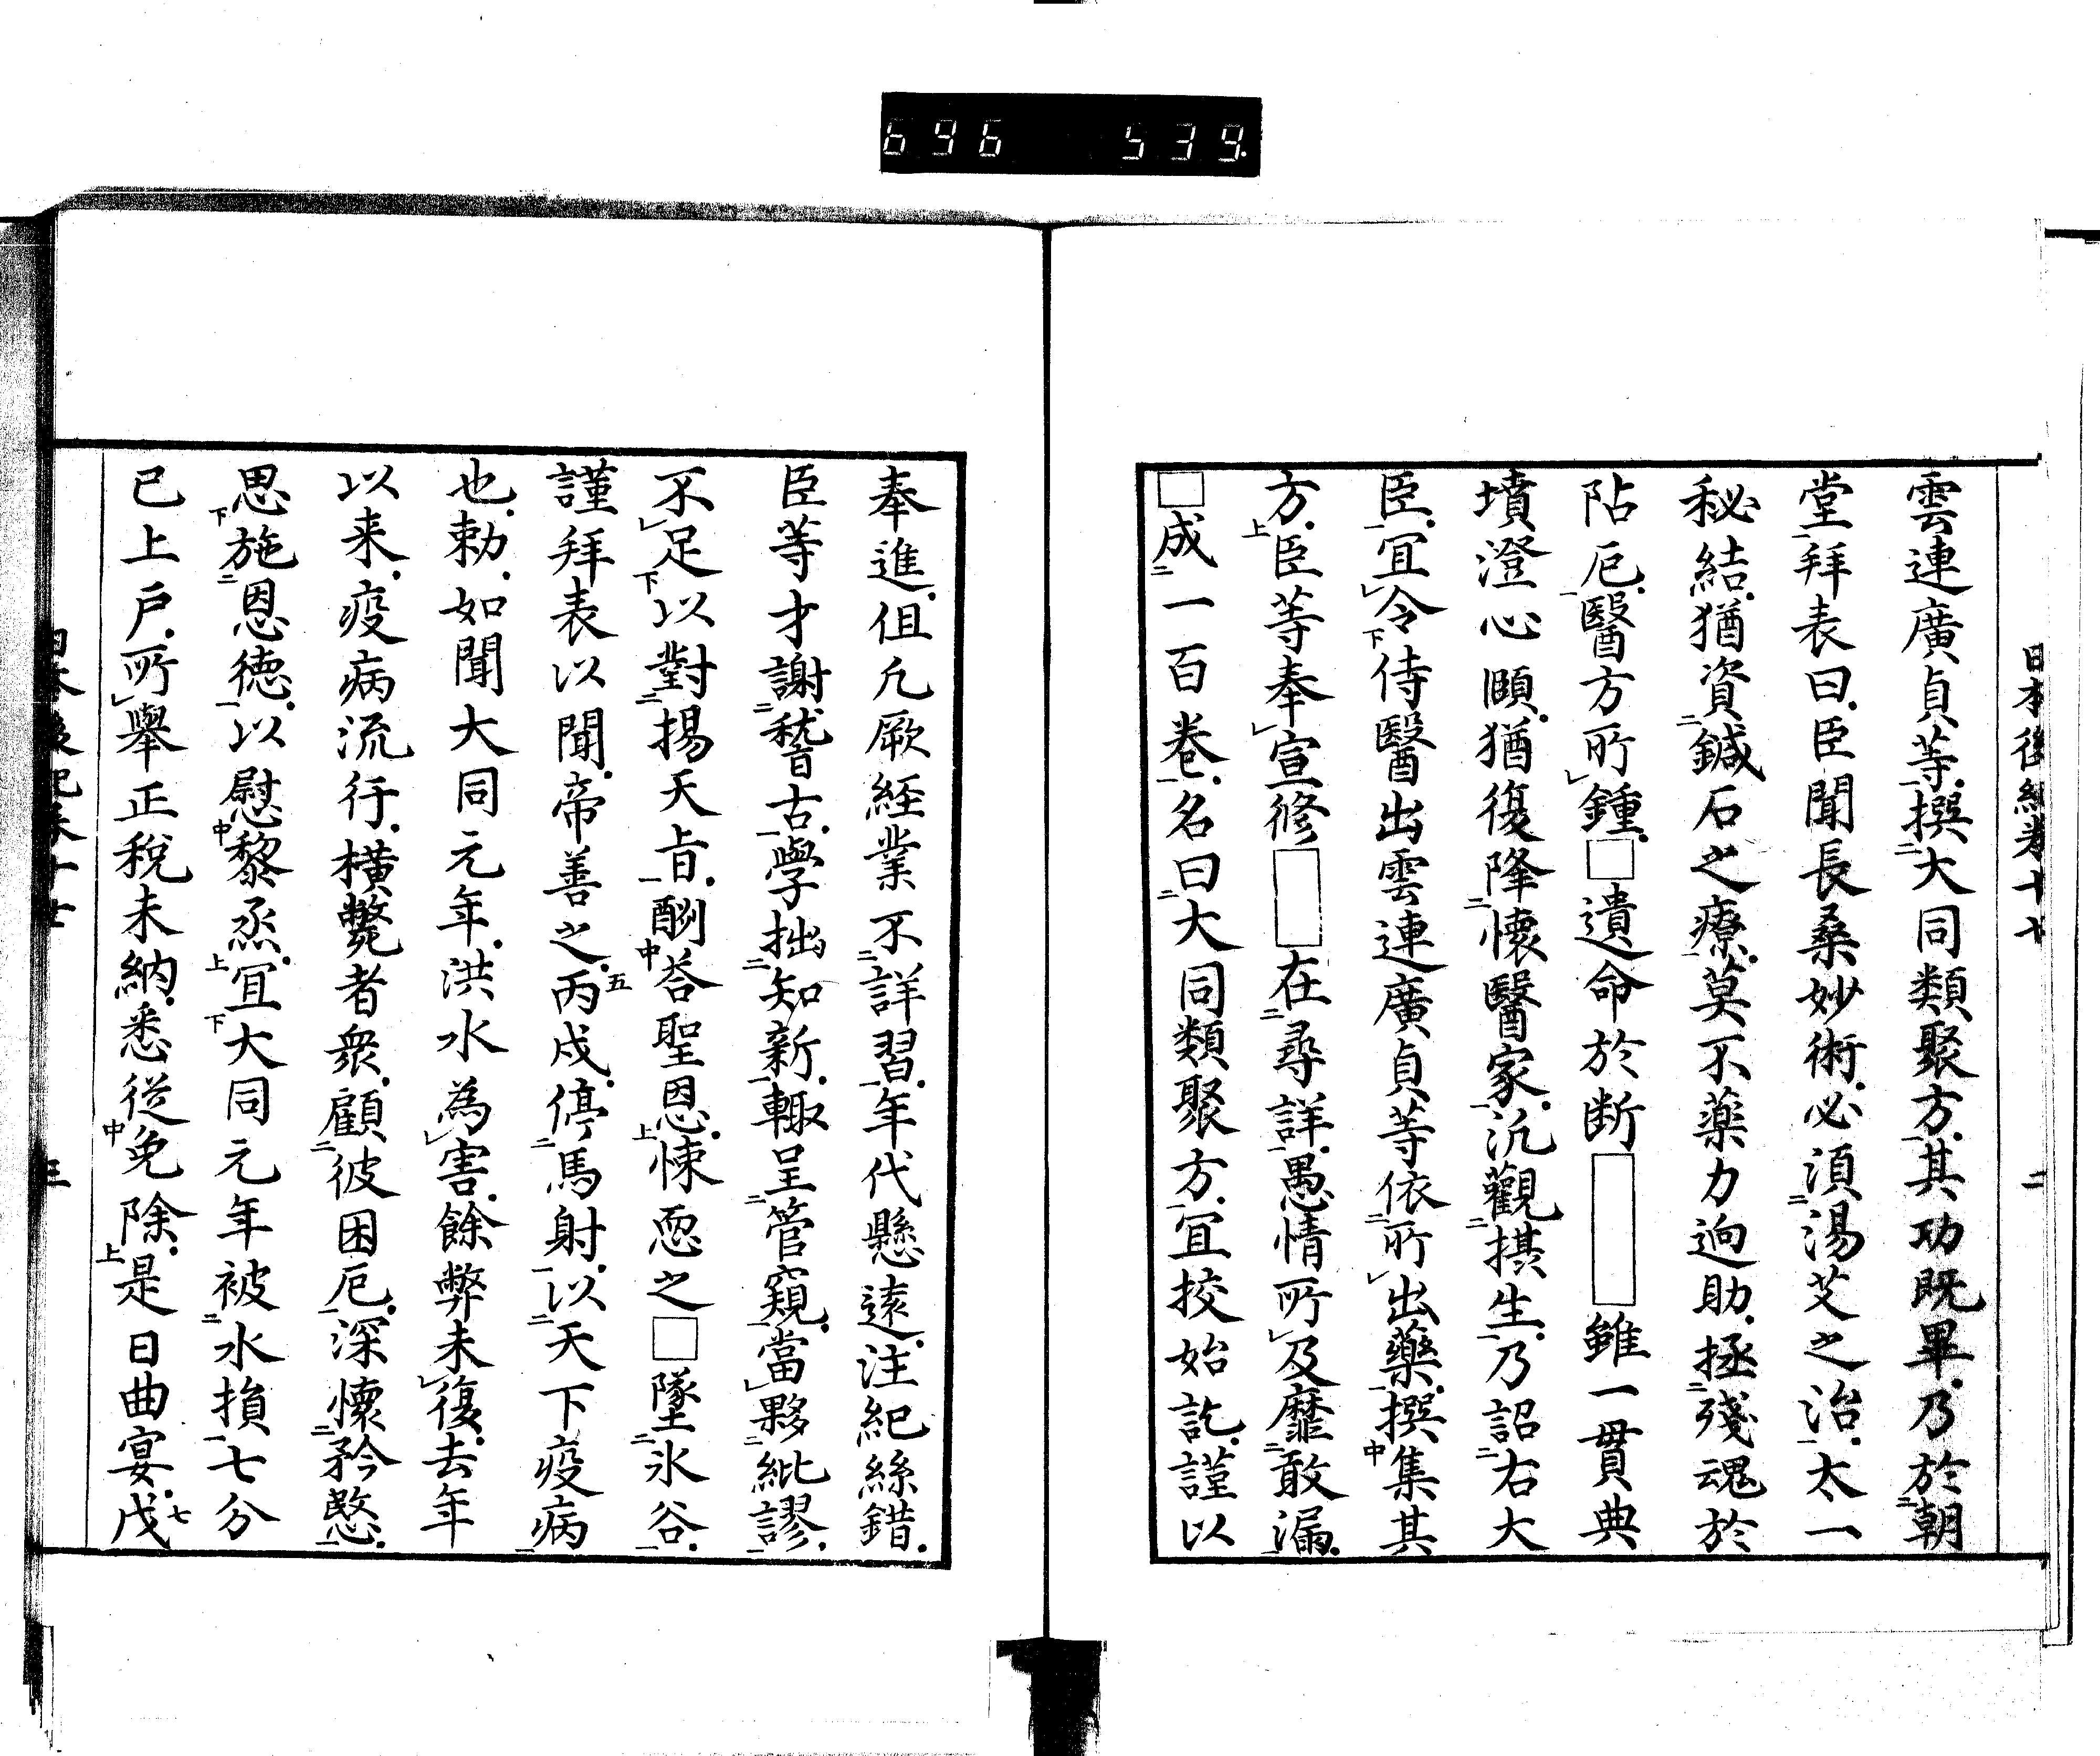 696 539.
日本後紀卷十七 二
雲連廣貞等。撰大同類聚方。其功既畢。乃於朝
堂拜表曰。臣聞長桑妙術。必湏湯艾之治。太一
秘結。猶資鍼石之療。莫不藥力逈助。拯殘魂於
阽厄。醫方所鍾。□遺命於断□雖一貫典
墳澄心頤。猶復降懷醫家。汎觀摂生。乃詔右大
臣。宜令侍醫出雲連廣貞等依所出藥。撰集其
方。臣等奉宣修□在尋詳。愚情所及靡敢漏。
□成一百巻。名曰大同類聚方。宜挍始訖。謹以
奉進。伹凡厥経業不詳習。年代懸遠。注紀絲錯。
臣等才謝稽古。學拙知新。輙呈管窺。當夥紕謬。
不足以對揚天旨。酬荅聖恩。悚恧之□墜氷谷。
謹拜表以聞。帝善之。丙戌。停馬射。以天下疫病
也。勅。如聞大同元年。洪水為害。餘弊未復。去年
以来。疫病流行。横斃者衆。顧彼困厄。深懷矜愍。
思施恩徳。以慰黎烝。宜大同元年被水損七分
已上戸。所擧正税未納。悉従免除。是日曲宴。戊
三